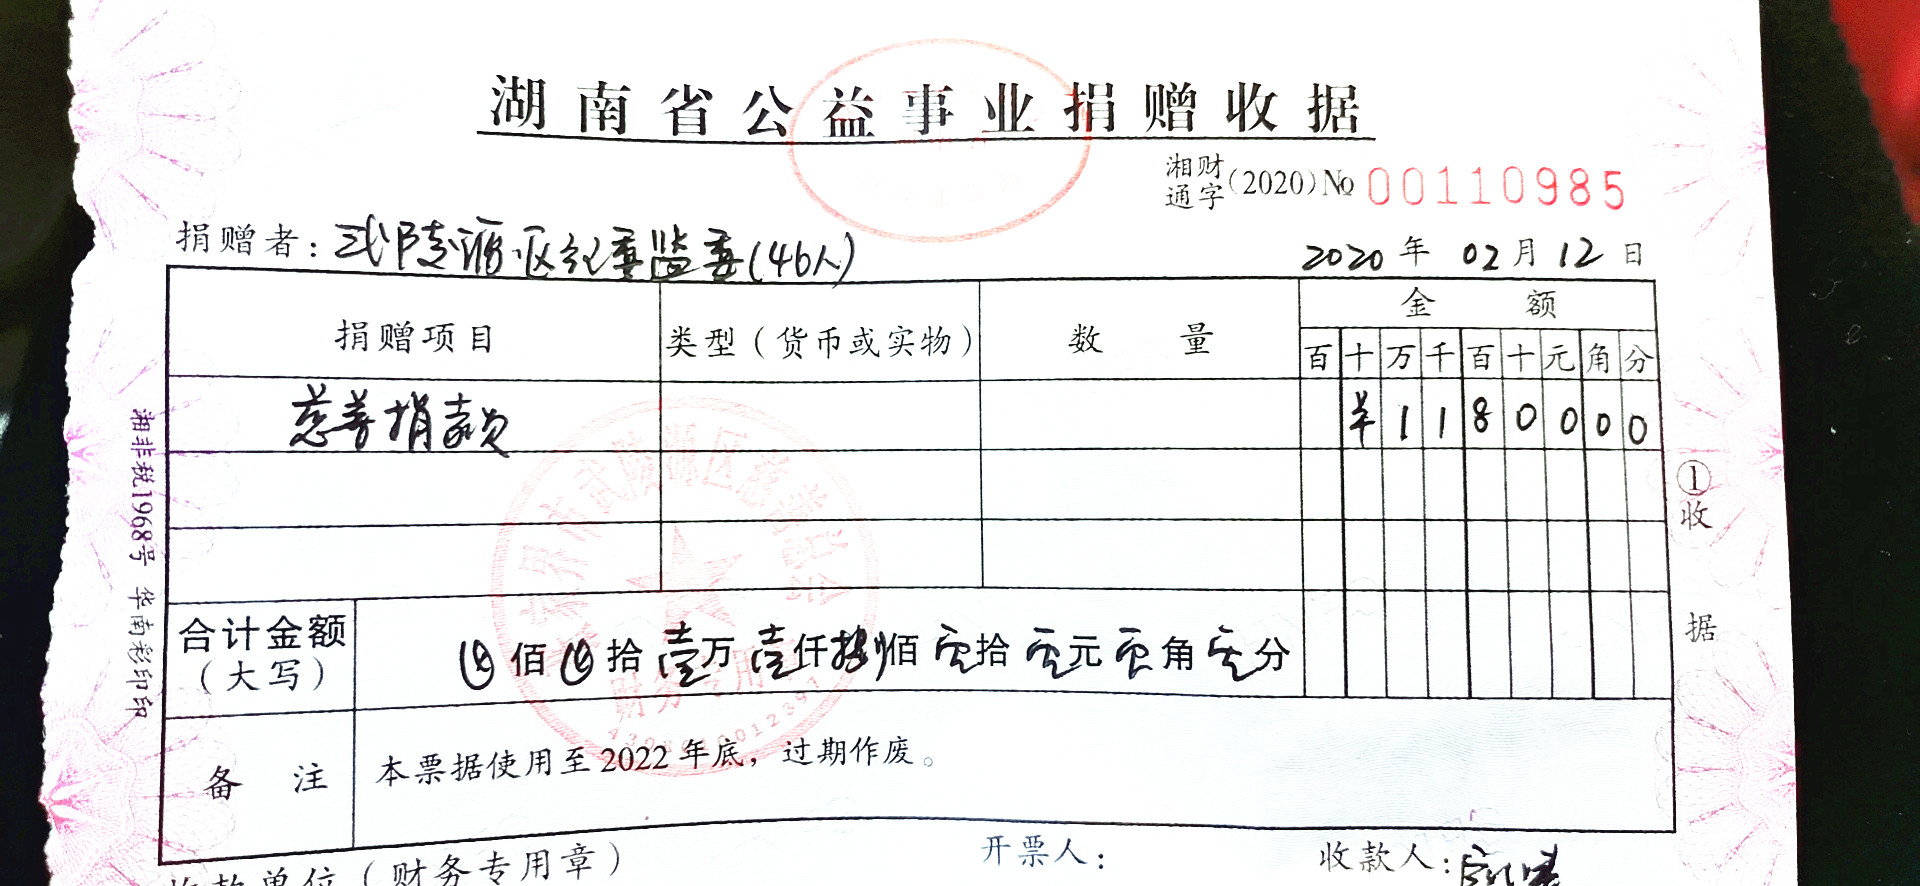 湖南省公益事业捐赠收据
湘财通字(2020)№ 00110985
捐赠者：武陵源区纪委监委(46人)
2020年02月12日
捐赠项目 类型（货币或实物） 数量 金额
百 十 万 千 百 十 元 角 分
慈善捐款 ¥ 1 1 8 0 0 0 0
合计金额（大写） 佰 拾 壹万 壹仟 捌佰 零拾 零元 零角 零分
备注 本票据使用至2022年底，过期作废。
收款单位（财务专用章） 开票人： 收款人：
①收据
湘非税1968号 华南彩印印
张家界市武陵源区慈善总会
财务专用章